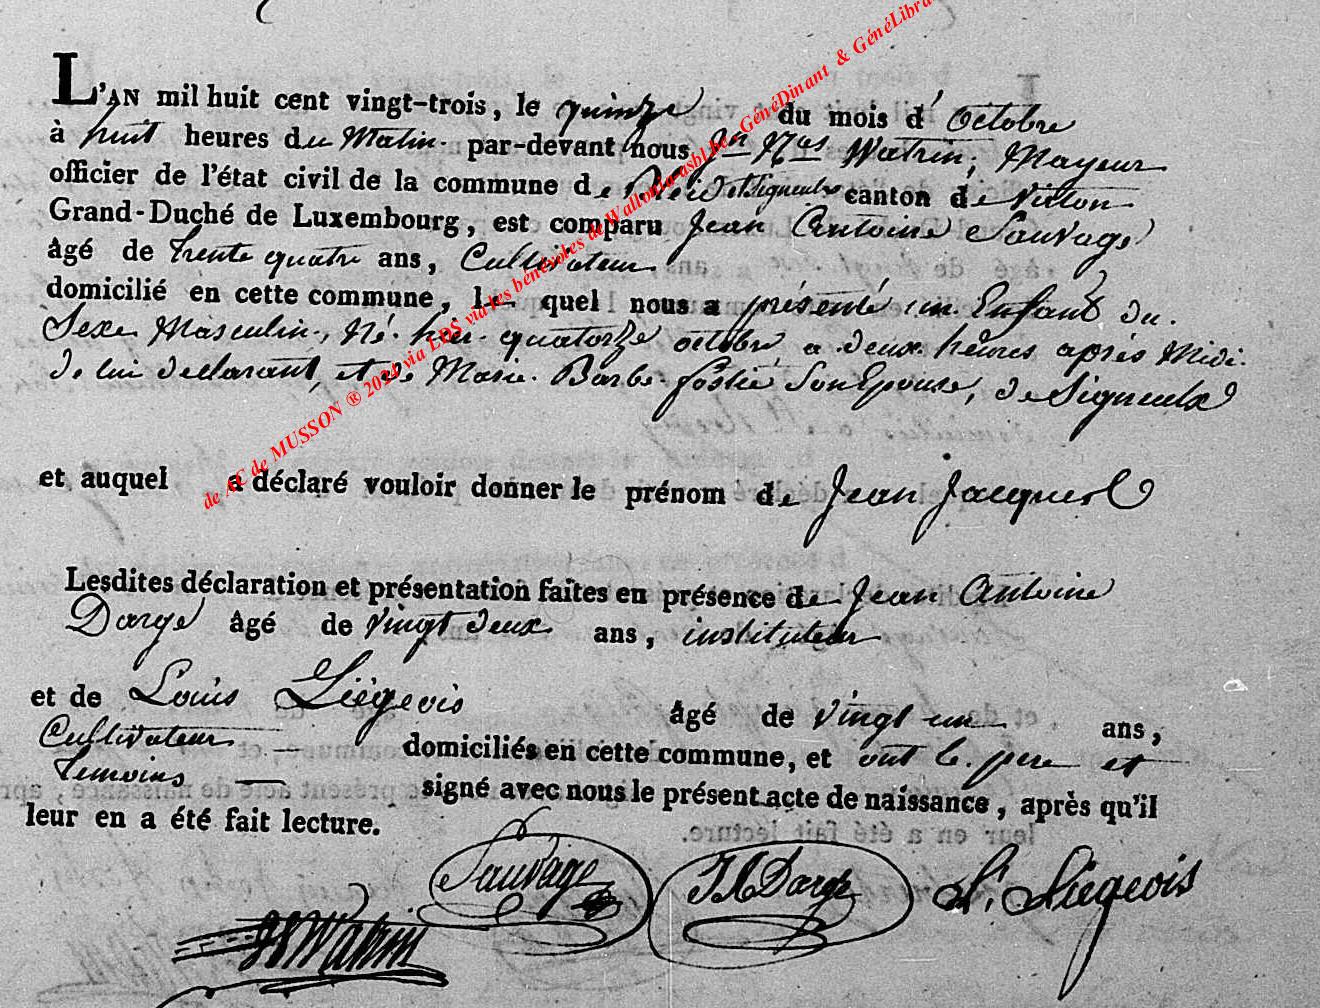 L'AN mil huit cent vingt-trois, le quinze du mois d'Octobre
à huit heures du Matin par-devant nous Jn Nas Watrin, Mayeur
officier de l'état civil de la commune de et Signeulx canton de Virton
Grand-Duché de Luxembourg, est comparu Jean Antoine Sauvage
âgé de trente quatre ans, Cultivateur
domicilié en cette commune, le quel nous a présenté un Enfant du
Sexe Masculin, Né hier quatorze octobre, a deux heures après Midi
de lui declarant, et de Marie Barbe Son Epouse, de Signeulx
et auquel a déclaré vouloir donner le prénom de Jean Jacques
Lesdites déclaration et présentation faites en présence de Jean Antoine
Dargé âgé de vingt deux ans, instituteur
et de Louis Liégeois âgé de vingt un ans,
Cultivateur domiciliés en cette commune, et ont le pere et
temoins signé avec nous le présent acte de naissance, après qu'il
leur en a été fait lecture.
Sauvage JADargé L. Liégeois
Watrin
de AC de MUSSON ® 2024 via LDS via les bénévoles de Wallonia-asbl.be - GénéDinant & GénéLibra